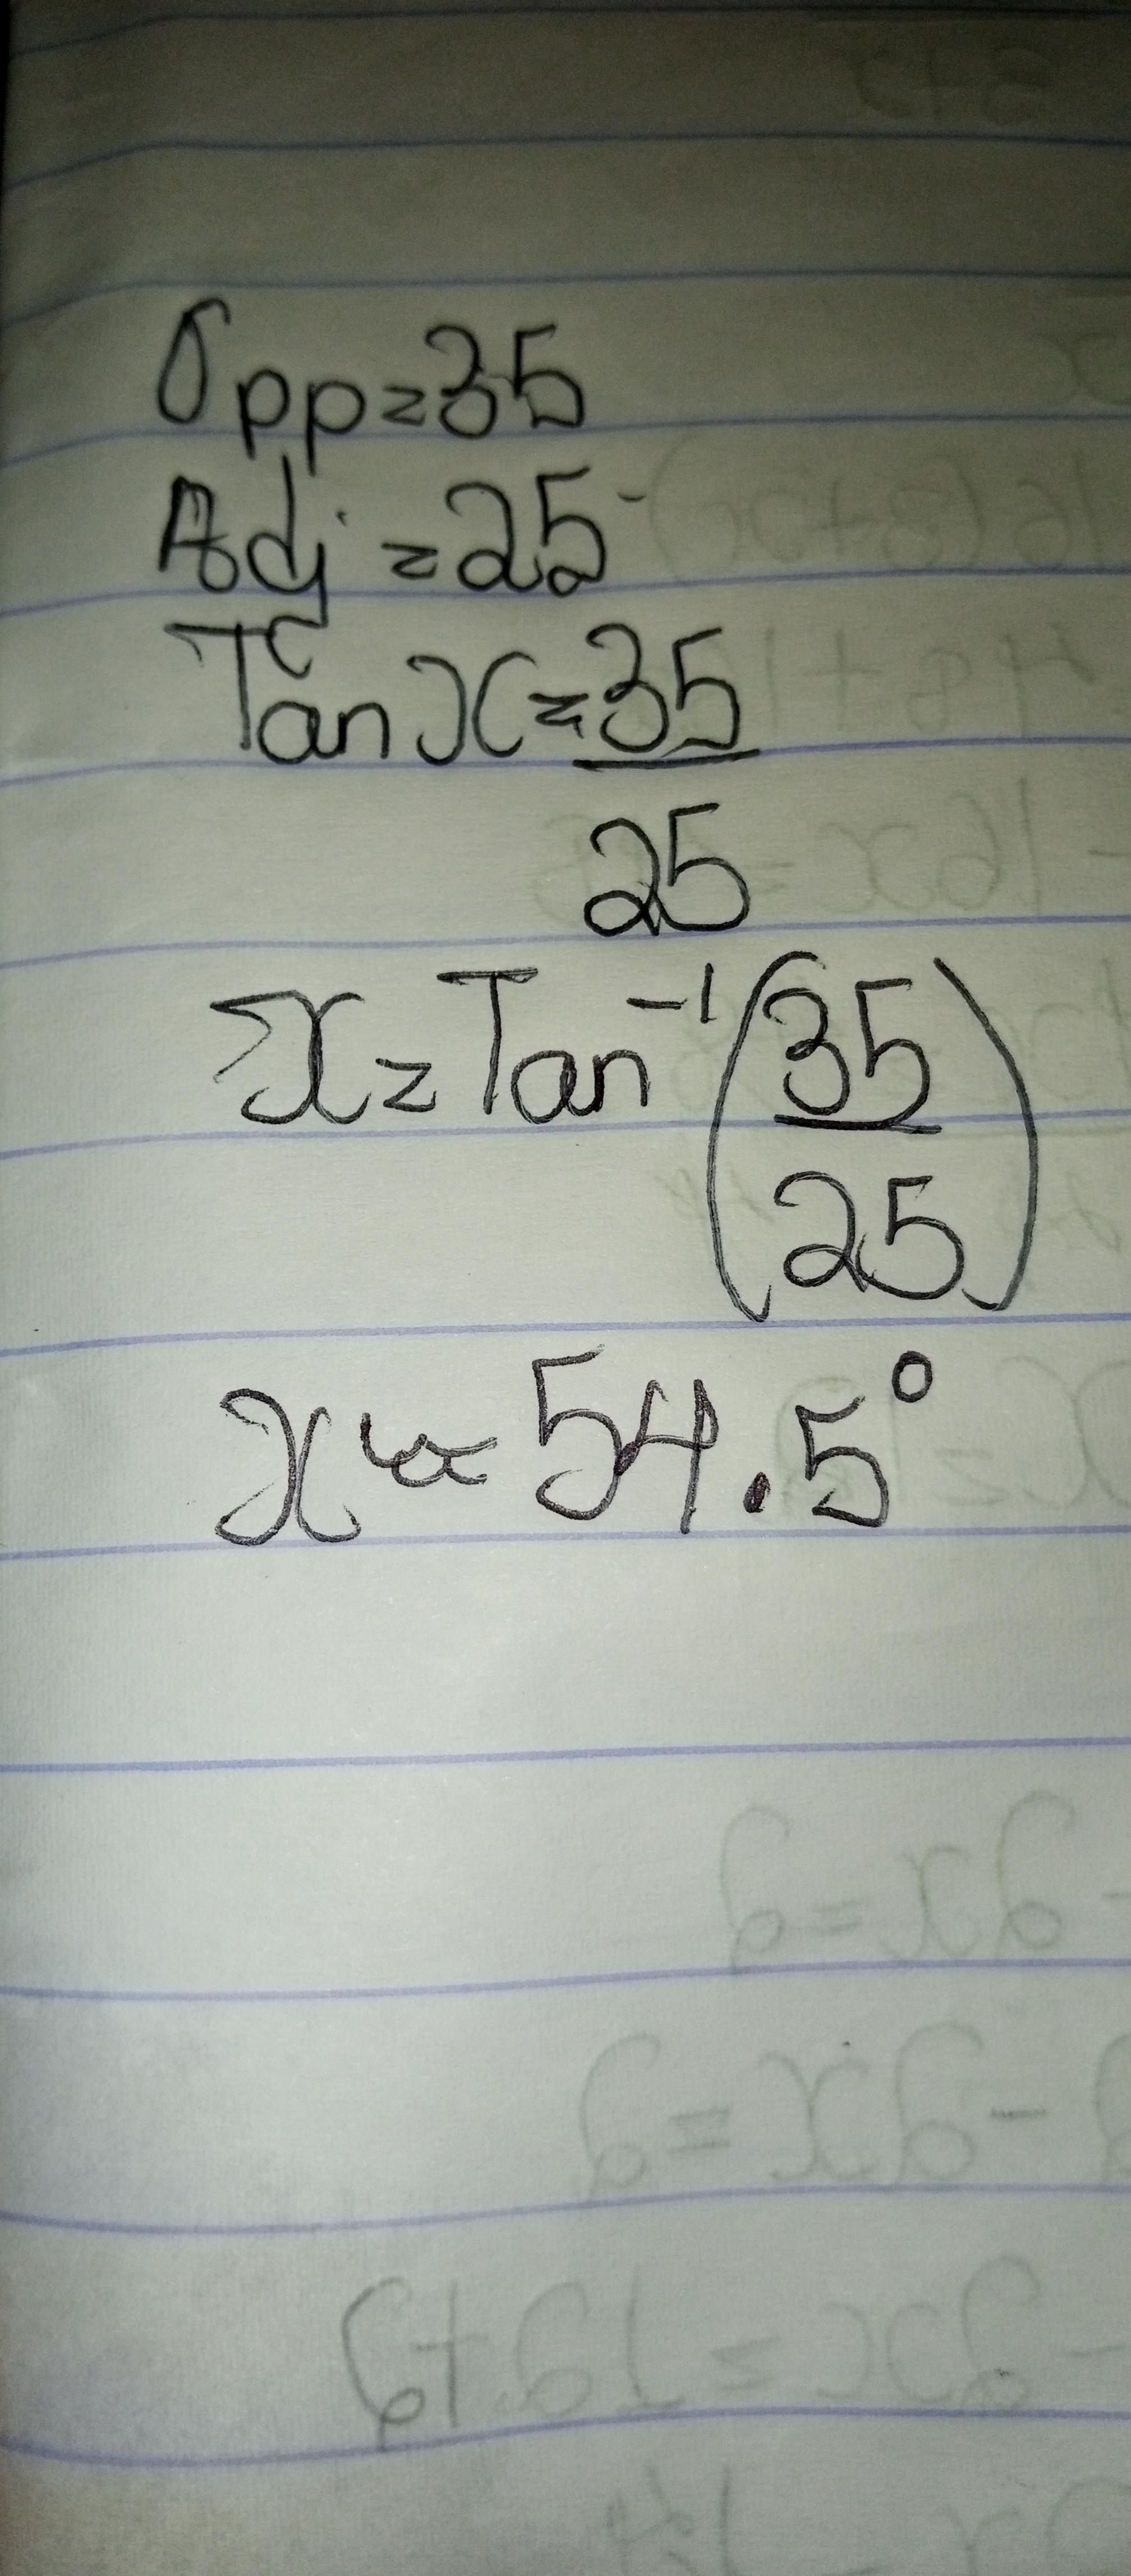 Opp=35
Adj=25
Tan x=35
25
x=Tan⁻¹(35
25)
x≈54.5°